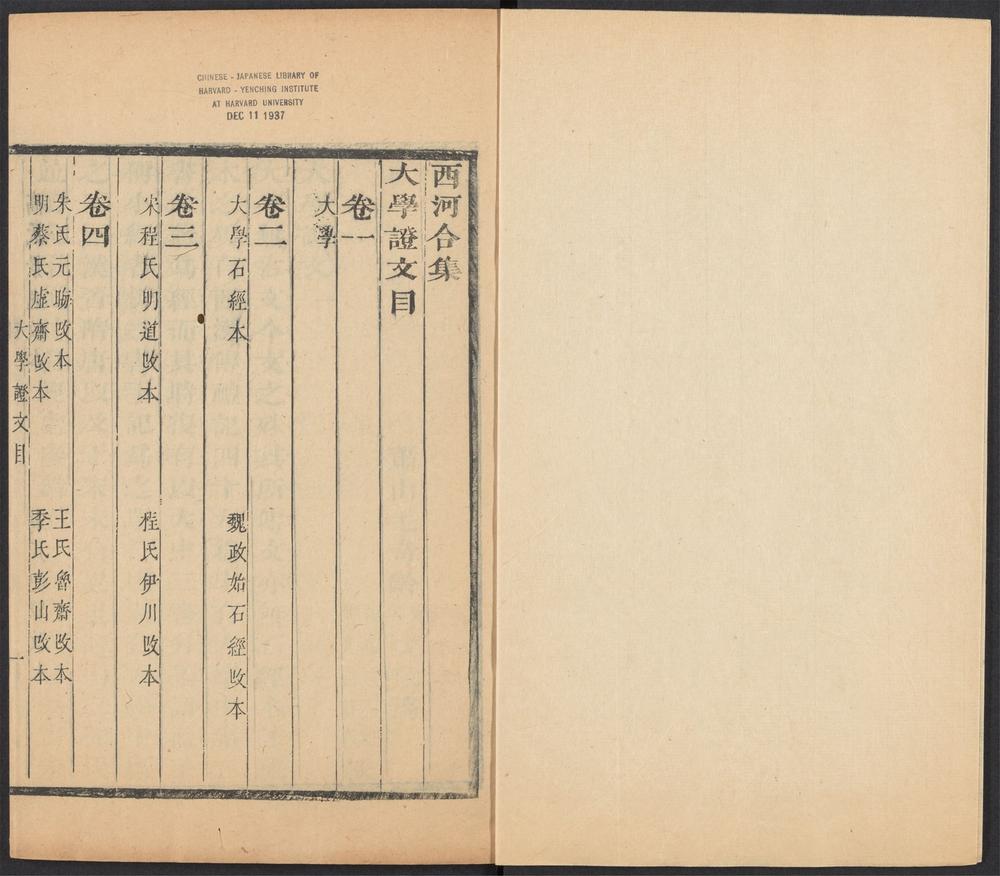 CHINESE - JAPANESE LIBRARY OF
HARVARD - YENCHING INSTITUTE
AT HARVARD UNIVERSITY
DEC 11 1937
西河合集
大學證文目
卷一
大學
卷二
大學石經本
魏政始石經改本
卷三
宋程氏明道改本
程氏伊川改本
卷四
朱氏元晦改本
王氏魯齋改本
明蔡氏虛齋改本
季氏彭山改本
大學證文目
一